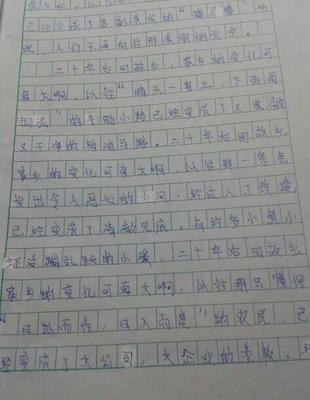 已经变成了名副其实的“
此，人们不再向往那
二十年后回故乡，家乡的变化可
真大啊，以往“晴天一身土，下雨两
泥”的羊肠小路已经变成了又宽敞
又干净的柏油马路。二十年后回故乡，
家乡的变化可真大啊，以往那一条条
发出令人恶心的小河，经过人工改造，
已经变成了清澈见底，有许多小鱼小
虾活蹦乱跳的小溪，二十年后回故乡
家乡的变化可真大啊，以往那只懂得
“日出而作，日入而息”的农民，已
经变成了大公司，大企业的老板。